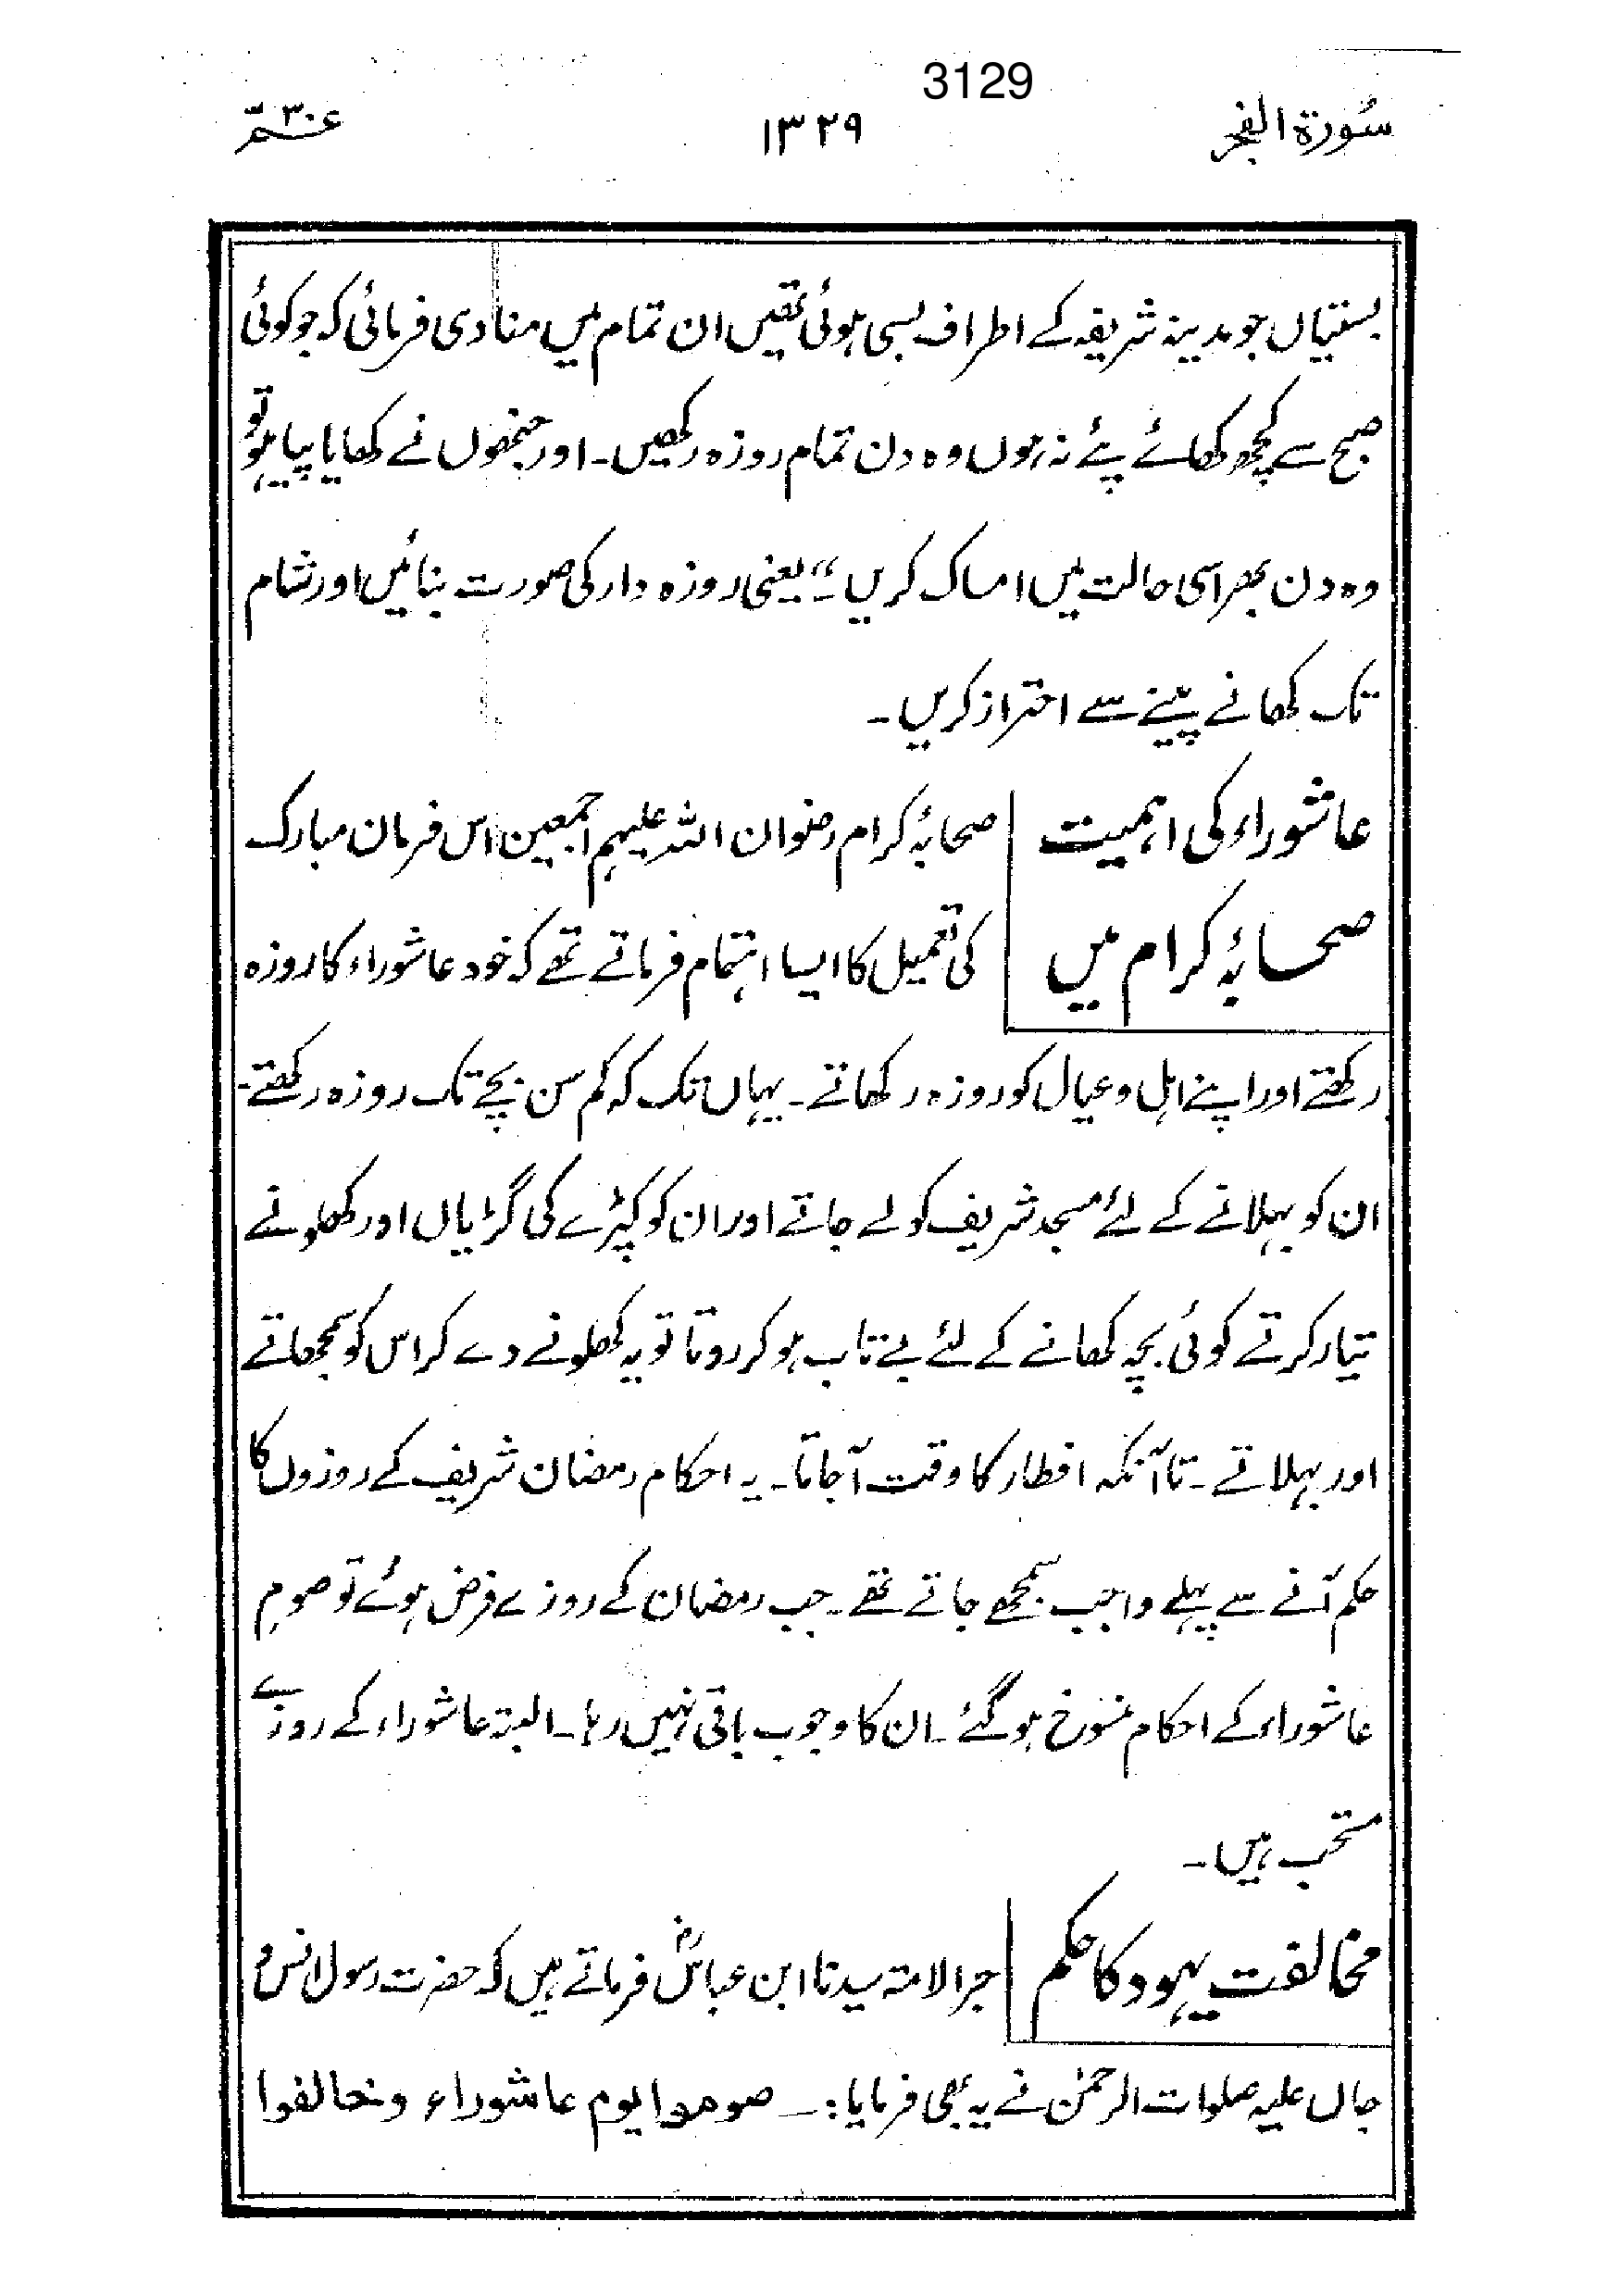 3129
سُورۃ الفجر ۱۳۲۹ عمّ۳۰
بستیاں جو مدینہ شریفہ کے اطراف بسی ہوئی تھیں ان تمام میں منادی فرمائی کہ جو کوئی
صبح سے کچھ کھائے پئے نہ ہوں وہ دن تمام روزہ رکھیں۔ اور جنھوں نے کھایا پیا ہو تو
وہ دن بھر اسی حالت میں امساک کریں ـ" یعنی روزہ دار کی صورت بنائیں اور شام
تک کھانے پینے سے احتراز کریں۔
عاشوراء کی اہمیت صحابۂ کرام رضوان اللہ علیہم اجمعین اس فرمان مبارک
صحابۂ کرام میں کی تعمیل کا ایسا اہتمام فرماتے تھے کہ خود عاشوراء کا روزہ
رکھتے اور اپنے اہل و عیال کو روزہ رکھاتے۔ یہاں تک کہ کم سن بچے تک روزہ رکھتے۔
ان کو بہلانے کے لئے مسجد شریف کو لے جاتے اور ان کو کپڑے کی گڑیاں اور کھلونے
تیار کرتے کوئی بچہ کھانے کے لئے بے تاب ہو کر روتا تو یہ کھلونے دے کر اس کو سمجھاتے
اور بہلاتے۔ تا آنکہ افطار کا وقت آجاتا۔ یہ احکام رمضان شریف کے روزوں کا
حکم آنے سے پہلے واجب سمجھے جاتے تھے۔ جب رمضان کے روزے فرض ہوئے تو صومِ
عاشوراء کے احکام منسوخ ہو گئے۔ ان کا وجوب باقی نہیں رہا۔ البتہ عاشوراء کے روزے
مستحب ہیں۔
مخالفت یہود کا حکم حبر الامۃ سیدنا ابن عباسؓ فرماتے ہیں کہ حضرت رسول انس و
جاں علیہ صلوات الرحمٰن نے یہ بھی فرمایا:۔ صوموا یوم عاشوراء وخالفوا